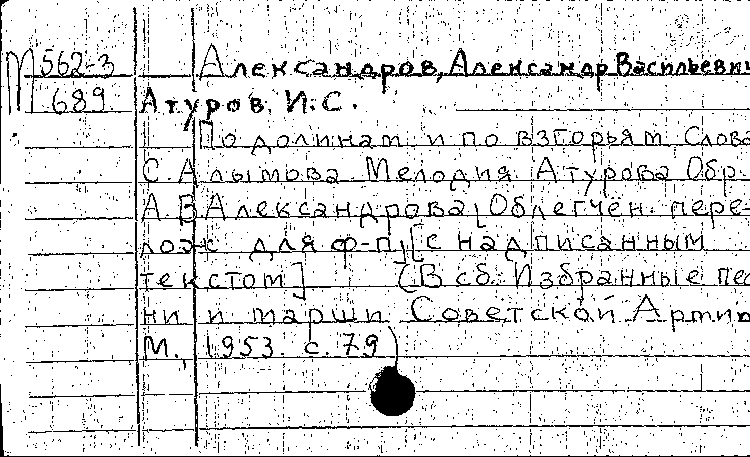 М 562-3 Александров, Александр Васильеви
689. Атуров, И. С.
По долинам и по взгорьям. Слова
С. Алымова. Мелодия Атурова Обр.
А. В Александрова, [Облегчён. пере-
лож. для ф-п], [с надписанным
текстом] (В сб. Избранные пес
ни и марши Советской Армии
М., 1953. с. 79)